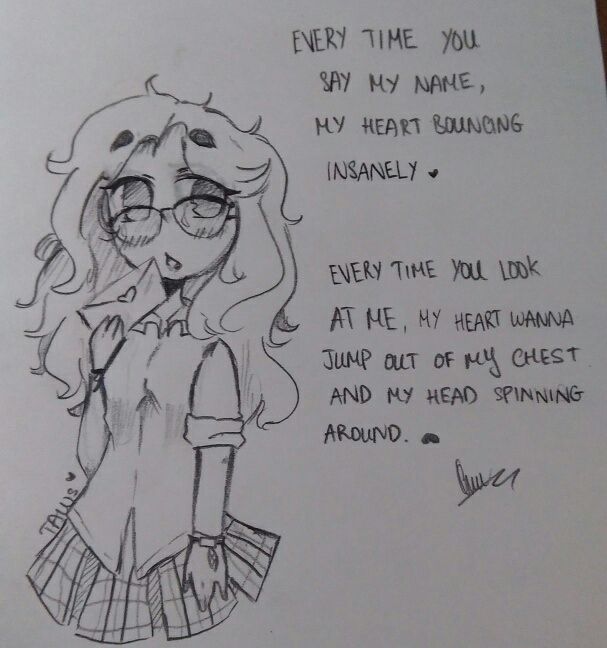 EVERY TIME YOU
SAY MY NAME,
MY HEART BOUNCING
INSANELY ♥
EVERY TIME YOU LOOK
AT ME, MY HEART WANNA
JUMP OUT OF MY CHEST
AND MY HEAD SPINNING
AROUND.